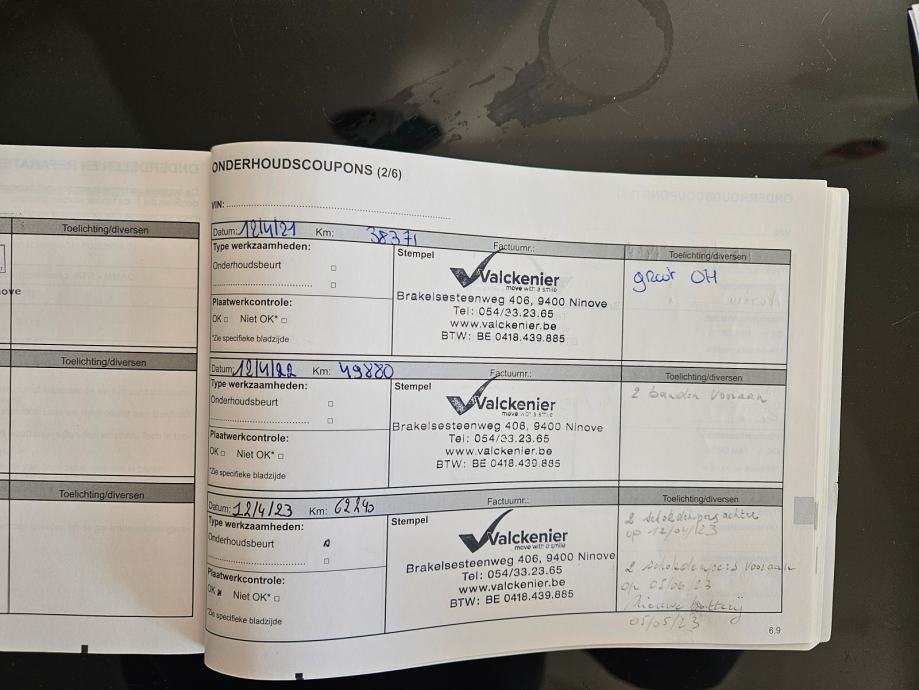 Toelichting/diversen
ove
Toelichting/diversen
Toelichting/diversen
ONDERHOUDSCOUPONS (2/6)
VIN:
Datum: 12/4/21 Km: 38371 Factuurnr.: Toelichting/diversen
Type werkzaamheden: Stempel
Onderhoudsbeurt
Plaatwerkcontrole:
OK Niet OK*
*Zie specifieke bladzijde
Valckenier
move with a smile
Brakelsesteenweg 406, 9400 Ninove
Tel: 054/33.23.65
www.valckenier.be
BTW: BE 0418.439.885
groot OH
Datum: 12/4/22 Km: 49880 Factuurnr.: Toelichting/diversen
Type werkzaamheden: Stempel
Onderhoudsbeurt
Plaatwerkcontrole:
OK Niet OK*
*Zie specifieke bladzijde
Valckenier
move with a smile
Brakelsesteenweg 406, 9400 Ninove
Tel: 054/33.23.65
www.valckenier.be
BTW: BE 0418.439.885
2 banden vooraan
Datum: 12/4/23 Km: 62240 Factuurnr.: Toelichting/diversen
Type werkzaamheden: Stempel
Onderhoudsbeurt
Plaatwerkcontrole:
OK Niet OK*
*Zie specifieke bladzijde
Valckenier
move with a smile
Brakelsesteenweg 406, 9400 Ninove
Tel: 054/33.23.65
www.valckenier.be
BTW: BE 0418.439.885
2 achter
op 12/04/23
2 vooraan
op 05/06/23
Nieuwe batterij
05/05/23
6.9